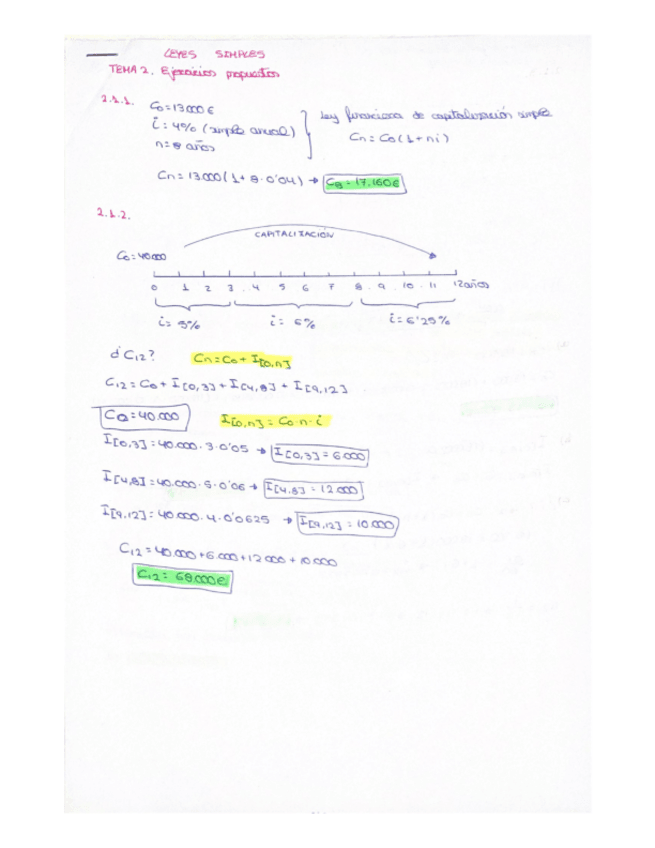 LEYES SIMPLES
TEMA 2. Ejercicios propuestos
2.1.1. C₀=13000€
i=4% (simple anual)
n=8 años
Ley financiera de capitalización simple
Cn=C₀(1+ni)
Cn=13.000(1+8·0'04) → C₈=17.160€
2.1.2.
CAPITALIZACIÓN
C₀=40000
0 1 2 3 . 4 5 6 7 8 . 9 . 10 . 11 12años
i=5% i=6% i=6'25%
¿C₁₂? Cn=C₀+I[0,n]
C₁₂=C₀+I[0,3]+I[4,8]+I[9,12]
C₀=40.000 I[0,n]=C₀·n·i
I[0,3]=40.000·3·0'05 → I[0,3]=6.000
I[4,8]=40.000·5·0'06 → I[4,8]=12.000
I[9,12]=40.000·4·0'0625 → I[9,12]=10.000
C₁₂=40.000+6.000+12.000+10.000
C₁₂=68.000€